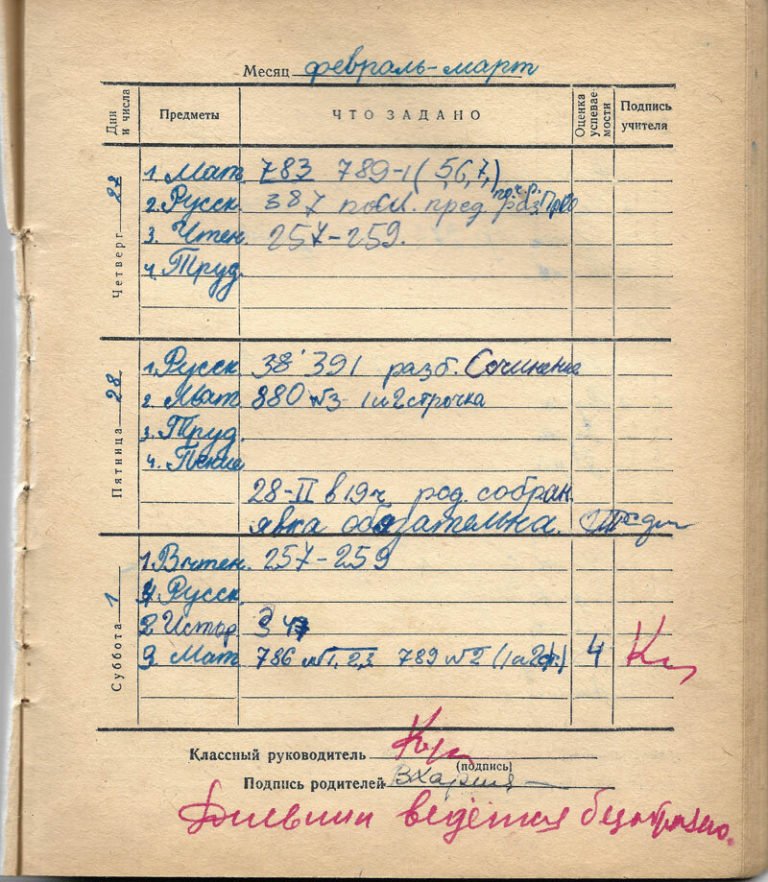 Месяц февраль-март
Дни и числа Предметы ЧТО ЗАДАНО Оценка успеваемости Подпись учителя
Четверг 27
1. Мат. 783 789-1 (5,6,7,)
2. Русск. 387 пред. раз.
3. Чтен. 257-259.
4. Труд.
Пятница 28
1. Русск. 391 разб. Сочинение
2. Мат. 880 №3 1 и 2 строчка
3. Труд.
4. Пение
28-II в 19ч род. собран.
явка обязательна.
Суббота 1
1. Вчтен. 257-259
Русск.
2 Истор.
3 Мат. 786 №1, 2,3 789 №2 (1 и 2 ) 4
Классный руководитель
(подпись)
Подпись родителей
Дневник ведётся безобразно.